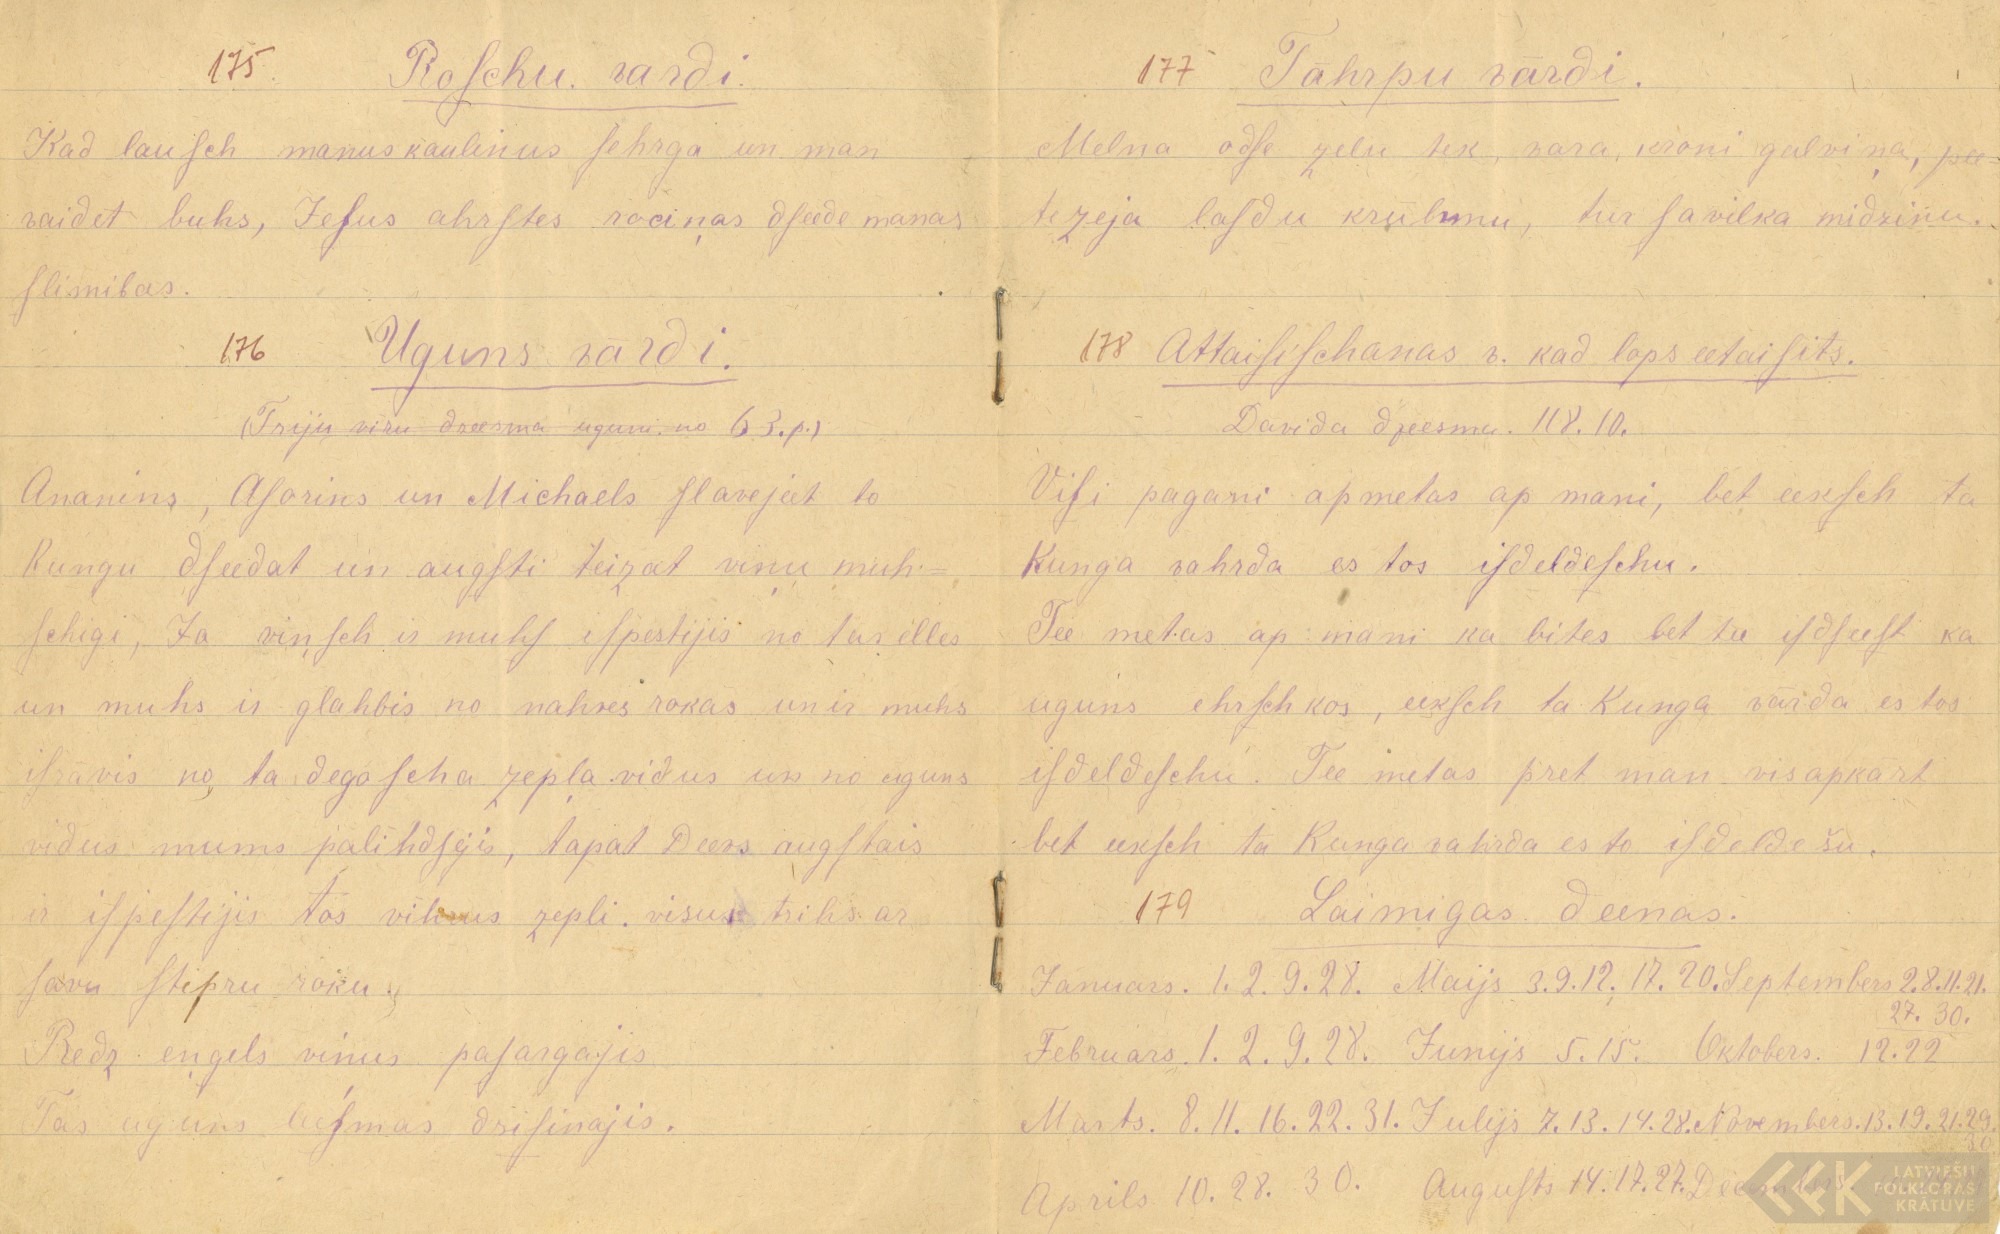 175. Roschu. vardi.
Kad lausch manus kaulinus sehrga un man
vaidet buhs, Jesus ahrstes rociņas dseede manas
slimibas.
176 Uguns vārdi.
(Triju viru dzeesma uguni no 63.p.)
Ananins, Asarins un Michaels slavejeet to
Kungu dseedat un augsti teizat viņu muh=
schigi, Ja viņsch ir muhs ispestijis no tas elles
un muhs ir glahbis no nahves rokas un ir muhs
isravis no ta degoscha zepļa vidus un no uguns
vidus mums palihdsejis, tapat Deevs augstais
ir ispestijis tos vihrus zepli. visus trihs ar
savu stipru roku.
Redz eņgels vinus pasargajis
Tas uguns leesmas dzisinajis.
177 Tāhrpu vārdi.
Melna odse zelu tek, vara kroni galviņa, pee=
tezeja lasdu krūbmu, tur savilka midziņu.
178 Attaisischanas v. kad lops eetaisits.
Davida dzeesma. 118.10.
Visi pagani apmetas ap mani, bet eeksch ta
Kunga vahrda es tos isdeldeschu.
Tee metas ap mani ka bites bet tee isdseest ka
uguns ehrschkos, eeksch ta Kunga vārda es tos
isdeldeschu. Tee metas pret man visapkart
bet eeksch ta Kunga vahrda es to isdeldešu.
179 Laimigas deenas.
Januars. 1. 2. 9. 28. Maijs 3. 9. 12. 17. 20. Septembers 2. 8. 11. 21.
27. 30.
Februars. 1. 2. 9. 28. Junijs 5. 15. Oktobers. 12. 22
Marts. 8. 11. 16. 22. 31. Julijs 7. 13. 14. 28. Novembers. 13. 19. 21. 29.
30
Aprils 10. 28. 30. Augusts 14. 17. 27. Decembers
LATVIEŠU
FOLKLORAS
KRĀTUVE